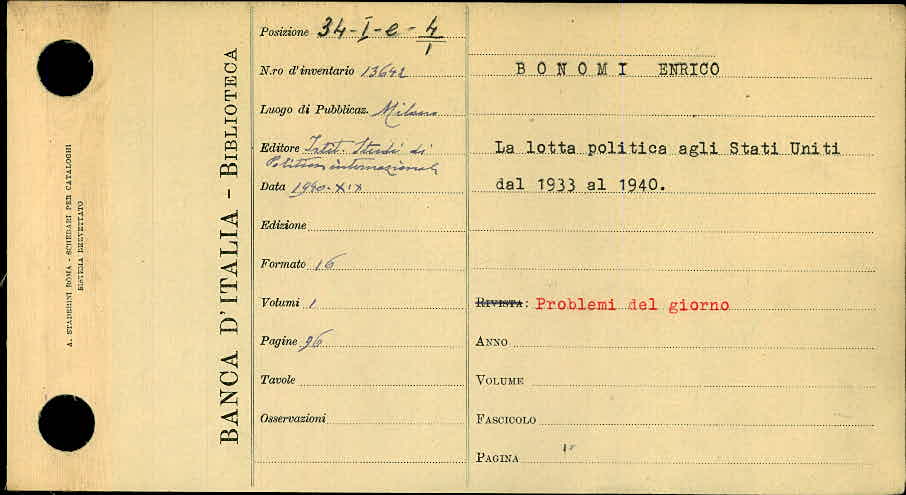 A. STADERINI ROMA - SCHEDARI PER CATALOGHI
SISTEMA BREVETTATO
BANCA D'ITALIA - BIBLIOTECA
Posizione 34-I-e-4/1
N.ro d'inventario 13642
Luogo di Pubblicaz. Milano
Editore Istit. Studi di
Politica internazionale
Data 1940-XIX
Edizione
Formato 16
Volumi 1
Pagine 96
Tavole
Osservazioni
BONOMI ENRICO
La lotta politica agli Stati Uniti
dal 1933 al 1940.
RIVISTA: Problemi del giorno
ANNO
VOLUME
FASCICOLO
PAGINA